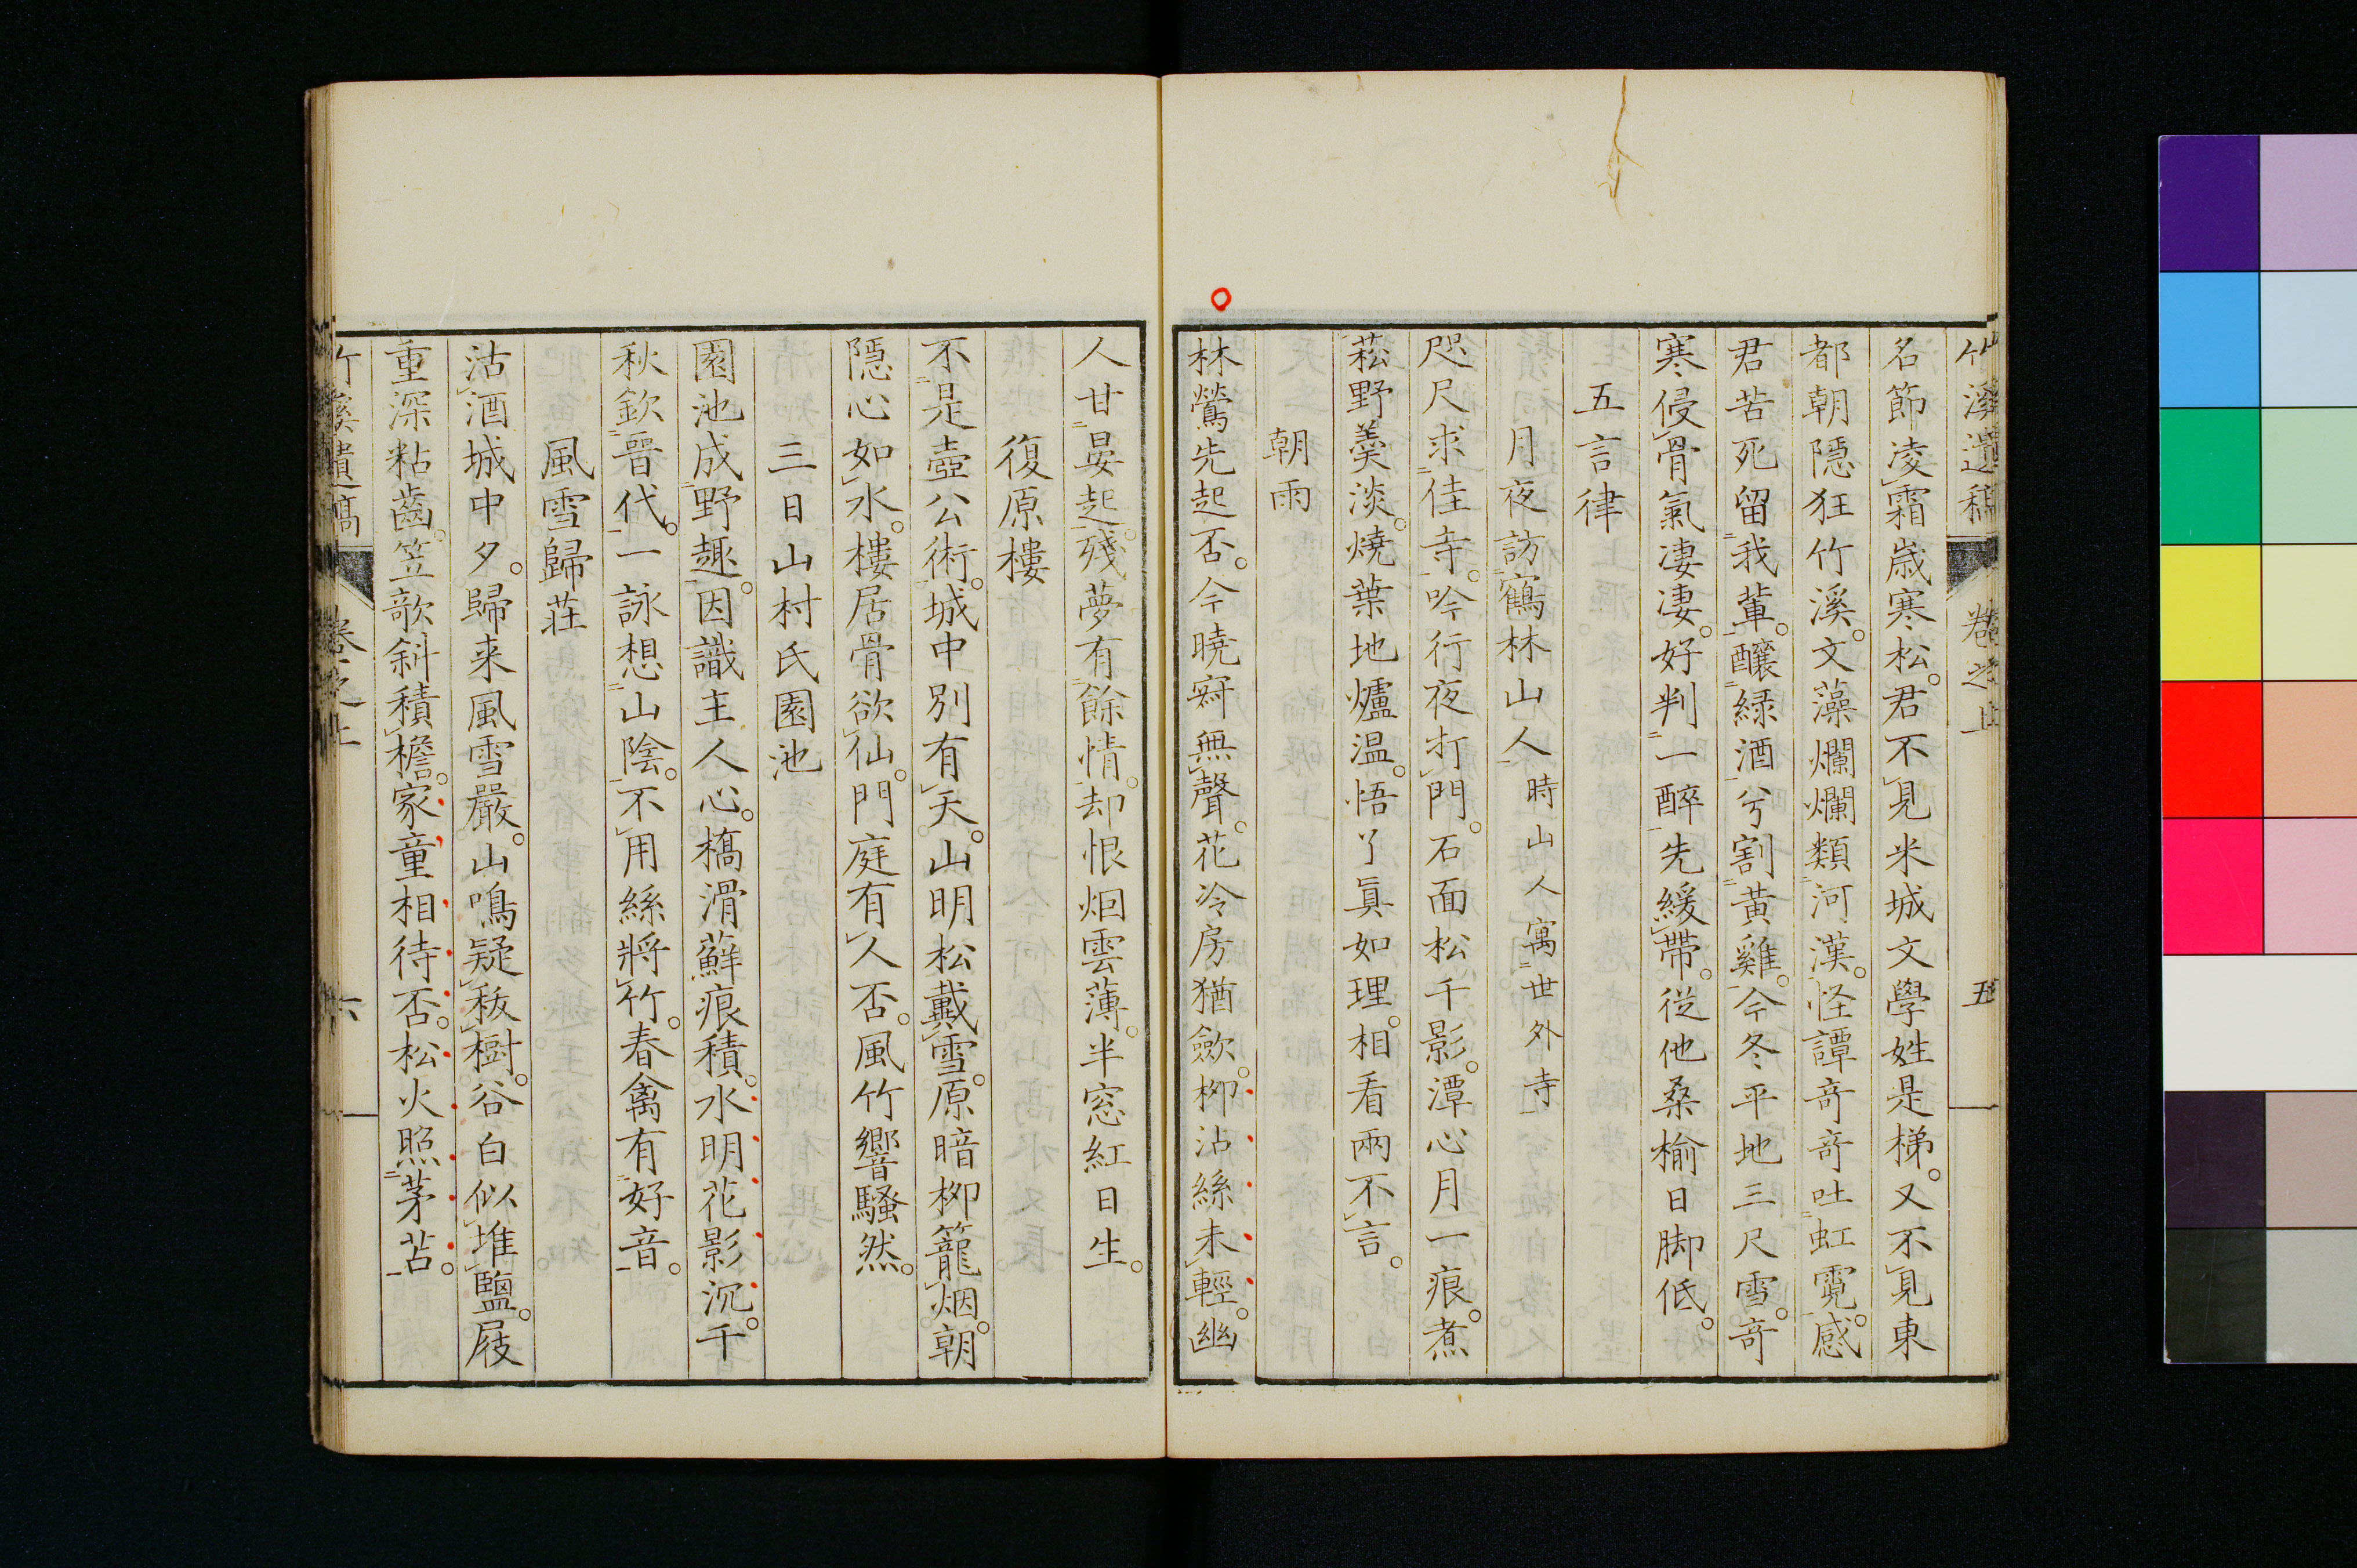 竹溪遺稿　卷之上　五
名節凌霜歲寒松。君不見米城文學姓是梯。又不見東
都朝隱狂竹溪。文藻爛爛類河漢。怪譚竒竒吐虹霓。感
君苦死留我輩。釀綠酒兮割黃雞。今冬平地三尺雪。竒
寒侵骨氣凄凄。好判一醉先緩帶。從他桑榆日脚低。
五言律
月夜訪鶴林山人時山人寓世外寺
咫尺求佳寺。吟行夜打門。石面松千影。潭心月一痕。煮
菘野羹淡。燒葉地爐温。悟了眞如理。相看兩不言。
朝雨
林鶯先起否。今曉寂無聲。花冷房猶斂。柳沾絲未輕。幽
人甘晏起。殘夢有餘情。却恨烟雲薄。半窓紅日生。
復原樓
不是壺公術。城中別有天。山明松戴雪。原暗柳籠烟。朝
隱心如水。樓居骨欲仙。門庭有人否。風竹響騷然。
三日山村氏園池
園池成野趣。因識主人心。橋滑蘚痕積。水明花影沉。千
秋欽晉代。一詠想山陰。不用絲將竹。春禽有好音。
風雪歸莊
沽酒城中夕。歸来風雪嚴。山鳴疑拔樹。谷白似堆鹽。屐
重深粘齒。笠欹斜積檐。家童相待否。松火照茅苫。
竹溪遺稿　卷之上　六